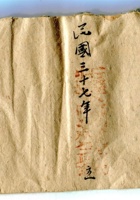 民國三十七年 立